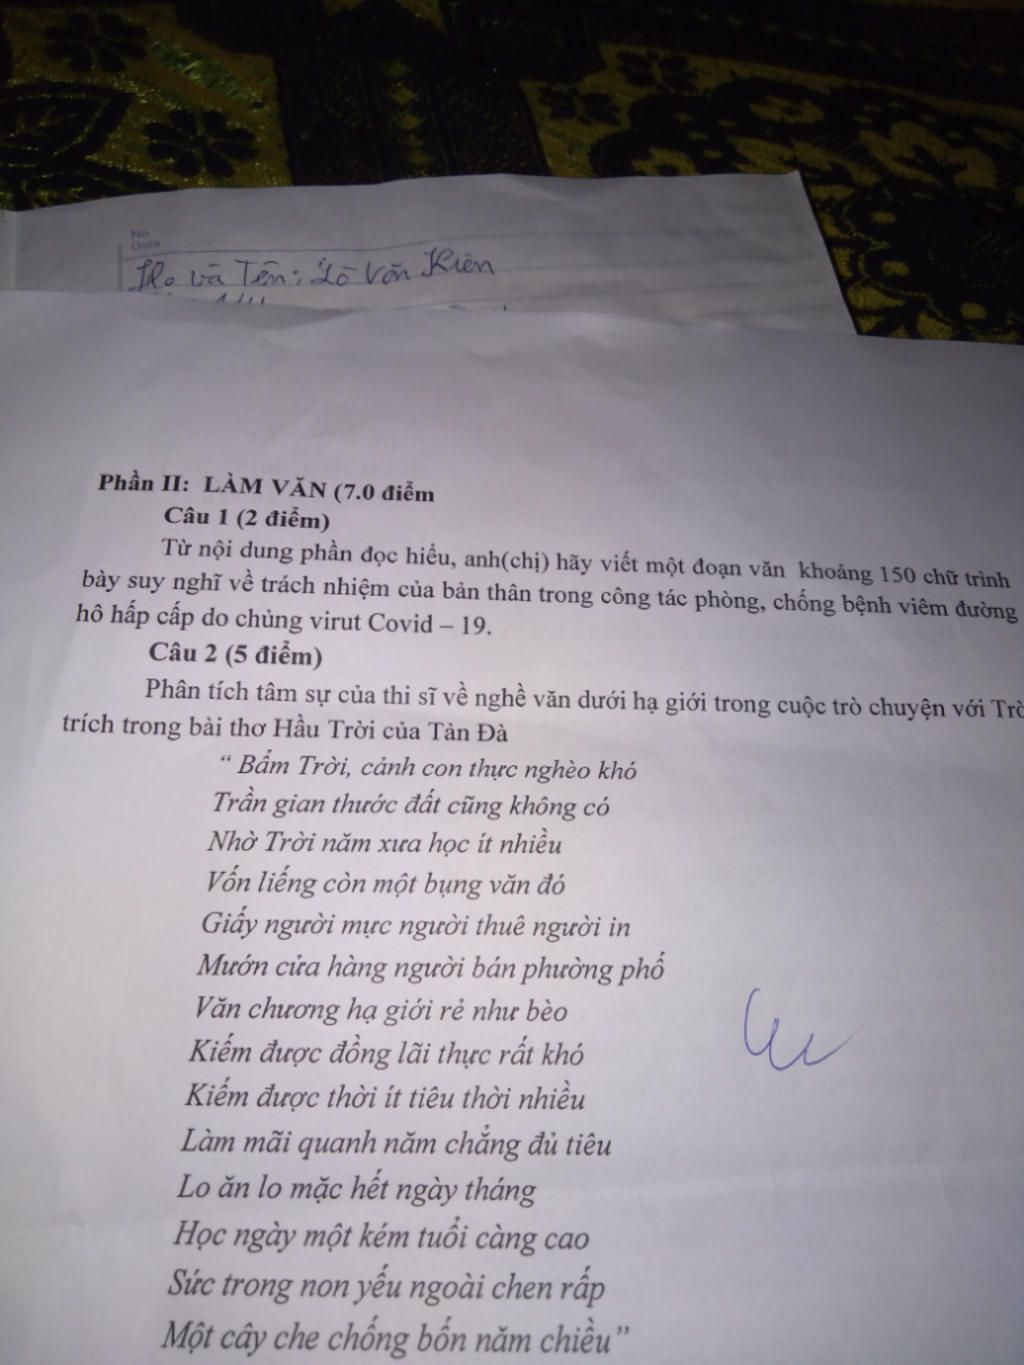 No.
Date
Họ và Tên: Lò Văn Kiên
Phần II: LÀM VĂN (7.0 điểm
Câu 1 (2 điểm)
Từ nội dung phần đọc hiểu, anh(chị) hãy viết một đoạn văn khoảng 150 chữ trình
bày suy nghĩ về trách nhiệm của bản thân trong công tác phòng, chống bệnh viêm đường
hô hấp cấp do chủng virut Covid – 19.
Câu 2 (5 điểm)
Phân tích tâm sự của thi sĩ về nghề văn dưới hạ giới trong cuộc trò chuyện với Trờ
trích trong bài thơ Hầu Trời của Tản Đà
“ Bẩm Trời, cảnh con thực nghèo khó
Trần gian thước đất cũng không có
Nhờ Trời năm xưa học ít nhiều
Vốn liếng còn một bụng văn đó
Giấy người mực người thuê người in
Mướn cửa hàng người bán phường phố
Văn chương hạ giới rẻ như bèo
Kiếm được đồng lãi thực rất khó
Kiếm được thời ít tiêu thời nhiều
Làm mãi quanh năm chẳng đủ tiêu
Lo ăn lo mặc hết ngày tháng
Học ngày một kém tuổi càng cao
Sức trong non yếu ngoài chen rấp
Một cây che chống bốn năm chiều”